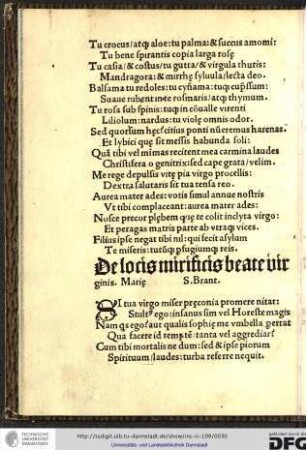 Tu crocus/atq̃ aloe: tu palma: & succus amomi:
Tu bene spirantis copia larga rosę
Tu casia/& costus/tu gutta/& virgula thuris:
Mandragora: & mirrhę syluula/lecta deo.
Balsama tu redoles: tu cynama: tuq; cupssum:
Suaue rubent inte rosmaris/atq; thymum.
Tu rosa sub spinis: tuq; in cõualle virenti
Liliolum: nardus: tu violę omnis odor.
Sed quorsum hęc citius ponti nũeremus harenas.
Et lybici quę sit messis habunda soli:
Quã tibi vel mimas recitent mea carmina laudes
Christifera o genitrix: sed cape grata/velim.
Me rege depulsis vitę pia virgo procellis:
Dextra salutaris sit tua tensa reo.
Aurea mater ades: votis simul annue nostris
Vt tibi complaceant: aurea mater ades:
Nosce precor plębem quę te colit inclyta virgo:
Et peragas matris parte ab vtraq; vices.
Filius ipse negat tibi nil: qui fecit asylum
Te miseris: tutũq; ꝓfugiumq; reis.
De locis mirificis beate vir
ginis. Marię S. Brant.
SI tua virgo miser pręconia promere nitar:
Stultꝰ ego: insanus sim vel Horeste magis
Nam qs ego? aut qualis sophię me vmbella perrat
Qua facere id temptẽ: tanta vel aggrediar?
Cum tibi mortalis ne dum: sed & ipse piorum
Spirituum/laudes: turba referre nequit.
TECHNISCHE UNIVERSITÄT DARMSTADT
http://tudigit.ulb.tu-darmstadt.de/show/inc-iv-199/0030
Universitäts- und Landesbibliothek Darmstadt
DFG